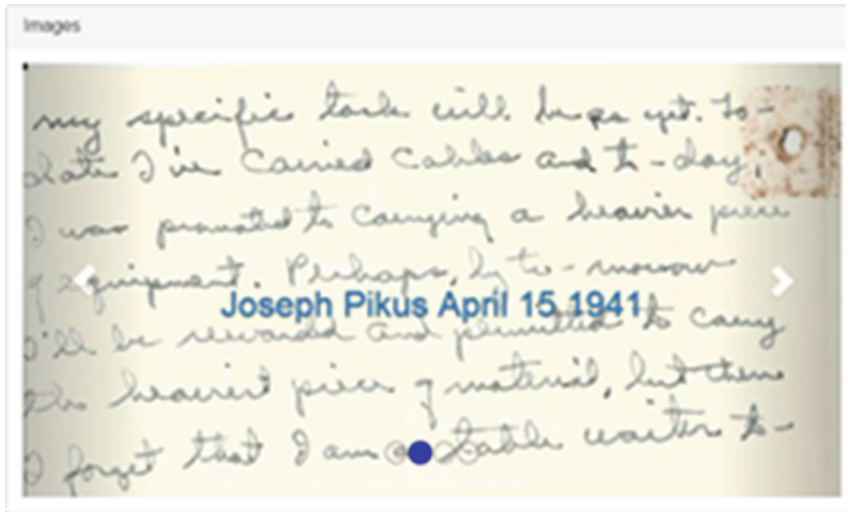 Images
my specific task will be as yet. To-
date I've carried cables and to-day,
I was promoted to carrying a heavier piece
of equipment. Perhaps, by to-morrow
Joseph Pikus April 15 1941
I'll be rewarded and permitted to carry
the heaviest piece of material, but then
I forget that I am a table waiter to-